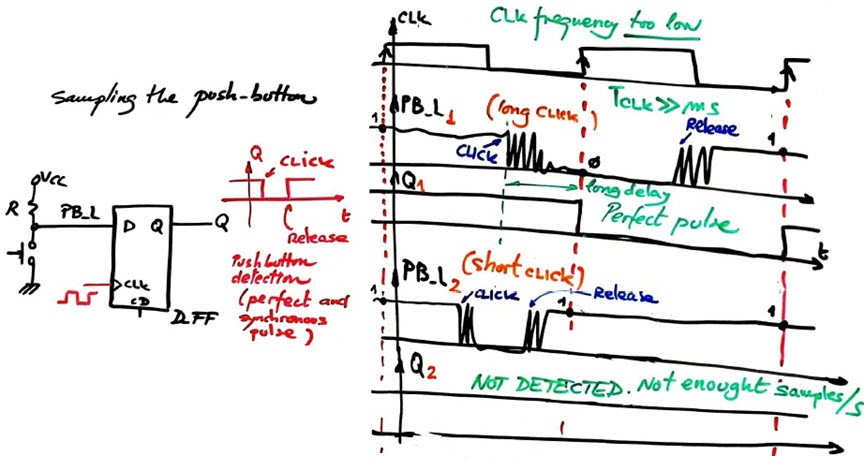 Sampling the push-button
VCC
R
PB_L
D Q
Q
CLK
CD
D_FF
Q
CLICK
t
Release
Push button
detection
(perfect and
synchronous
pulse)
CLK
CLK frequency too low
TCLK >> ms
PB_L1
(long CLICK)
1
CLICK
0
Release
1
Q1
long delay
Perfect pulse
t
PB_L2
(short click)
1
CLICK
Release
1
1
Q2
NOT DETECTED. Not enought samples/s